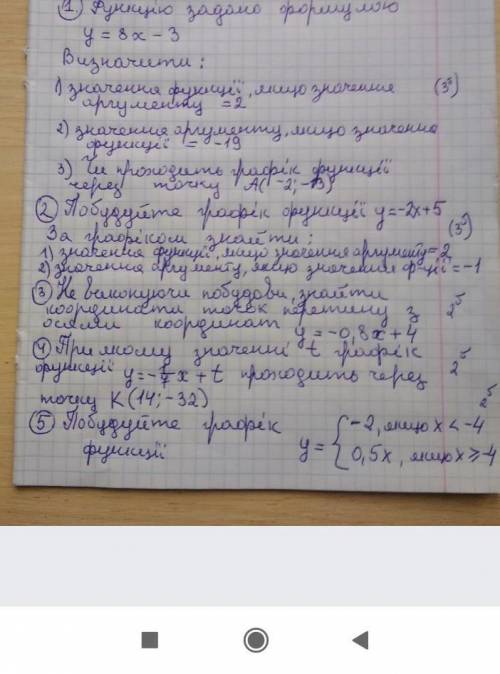 ① Функцію задано формулою
y = 8x - 3
Визначити:
1) значення функції, якщо значення (3б)
аргументу = 2
2) значення аргументу, якщо значення
функції = -19
3) Чи проходить графік функції
через точку A(-2; -13)
② Побудуйте графік функції y=-2x+5
За графіком знайти: (3б)
1) значення функції, якщо значення аргументу = 2
2) значення аргументу, якщо значення ф-ції = -1
③ Не виконуючи побудови, знайти
координати точок перетину з 2б
осями координат y = -0,8x + 4
④ При якому значенні t графік
функції x + t проходить через 2б
точку K (14; -32)
⑤ Побудуйте графік 2б
функції y = { -2, якщо x < -4
0,5x, якщо x ≥ -4